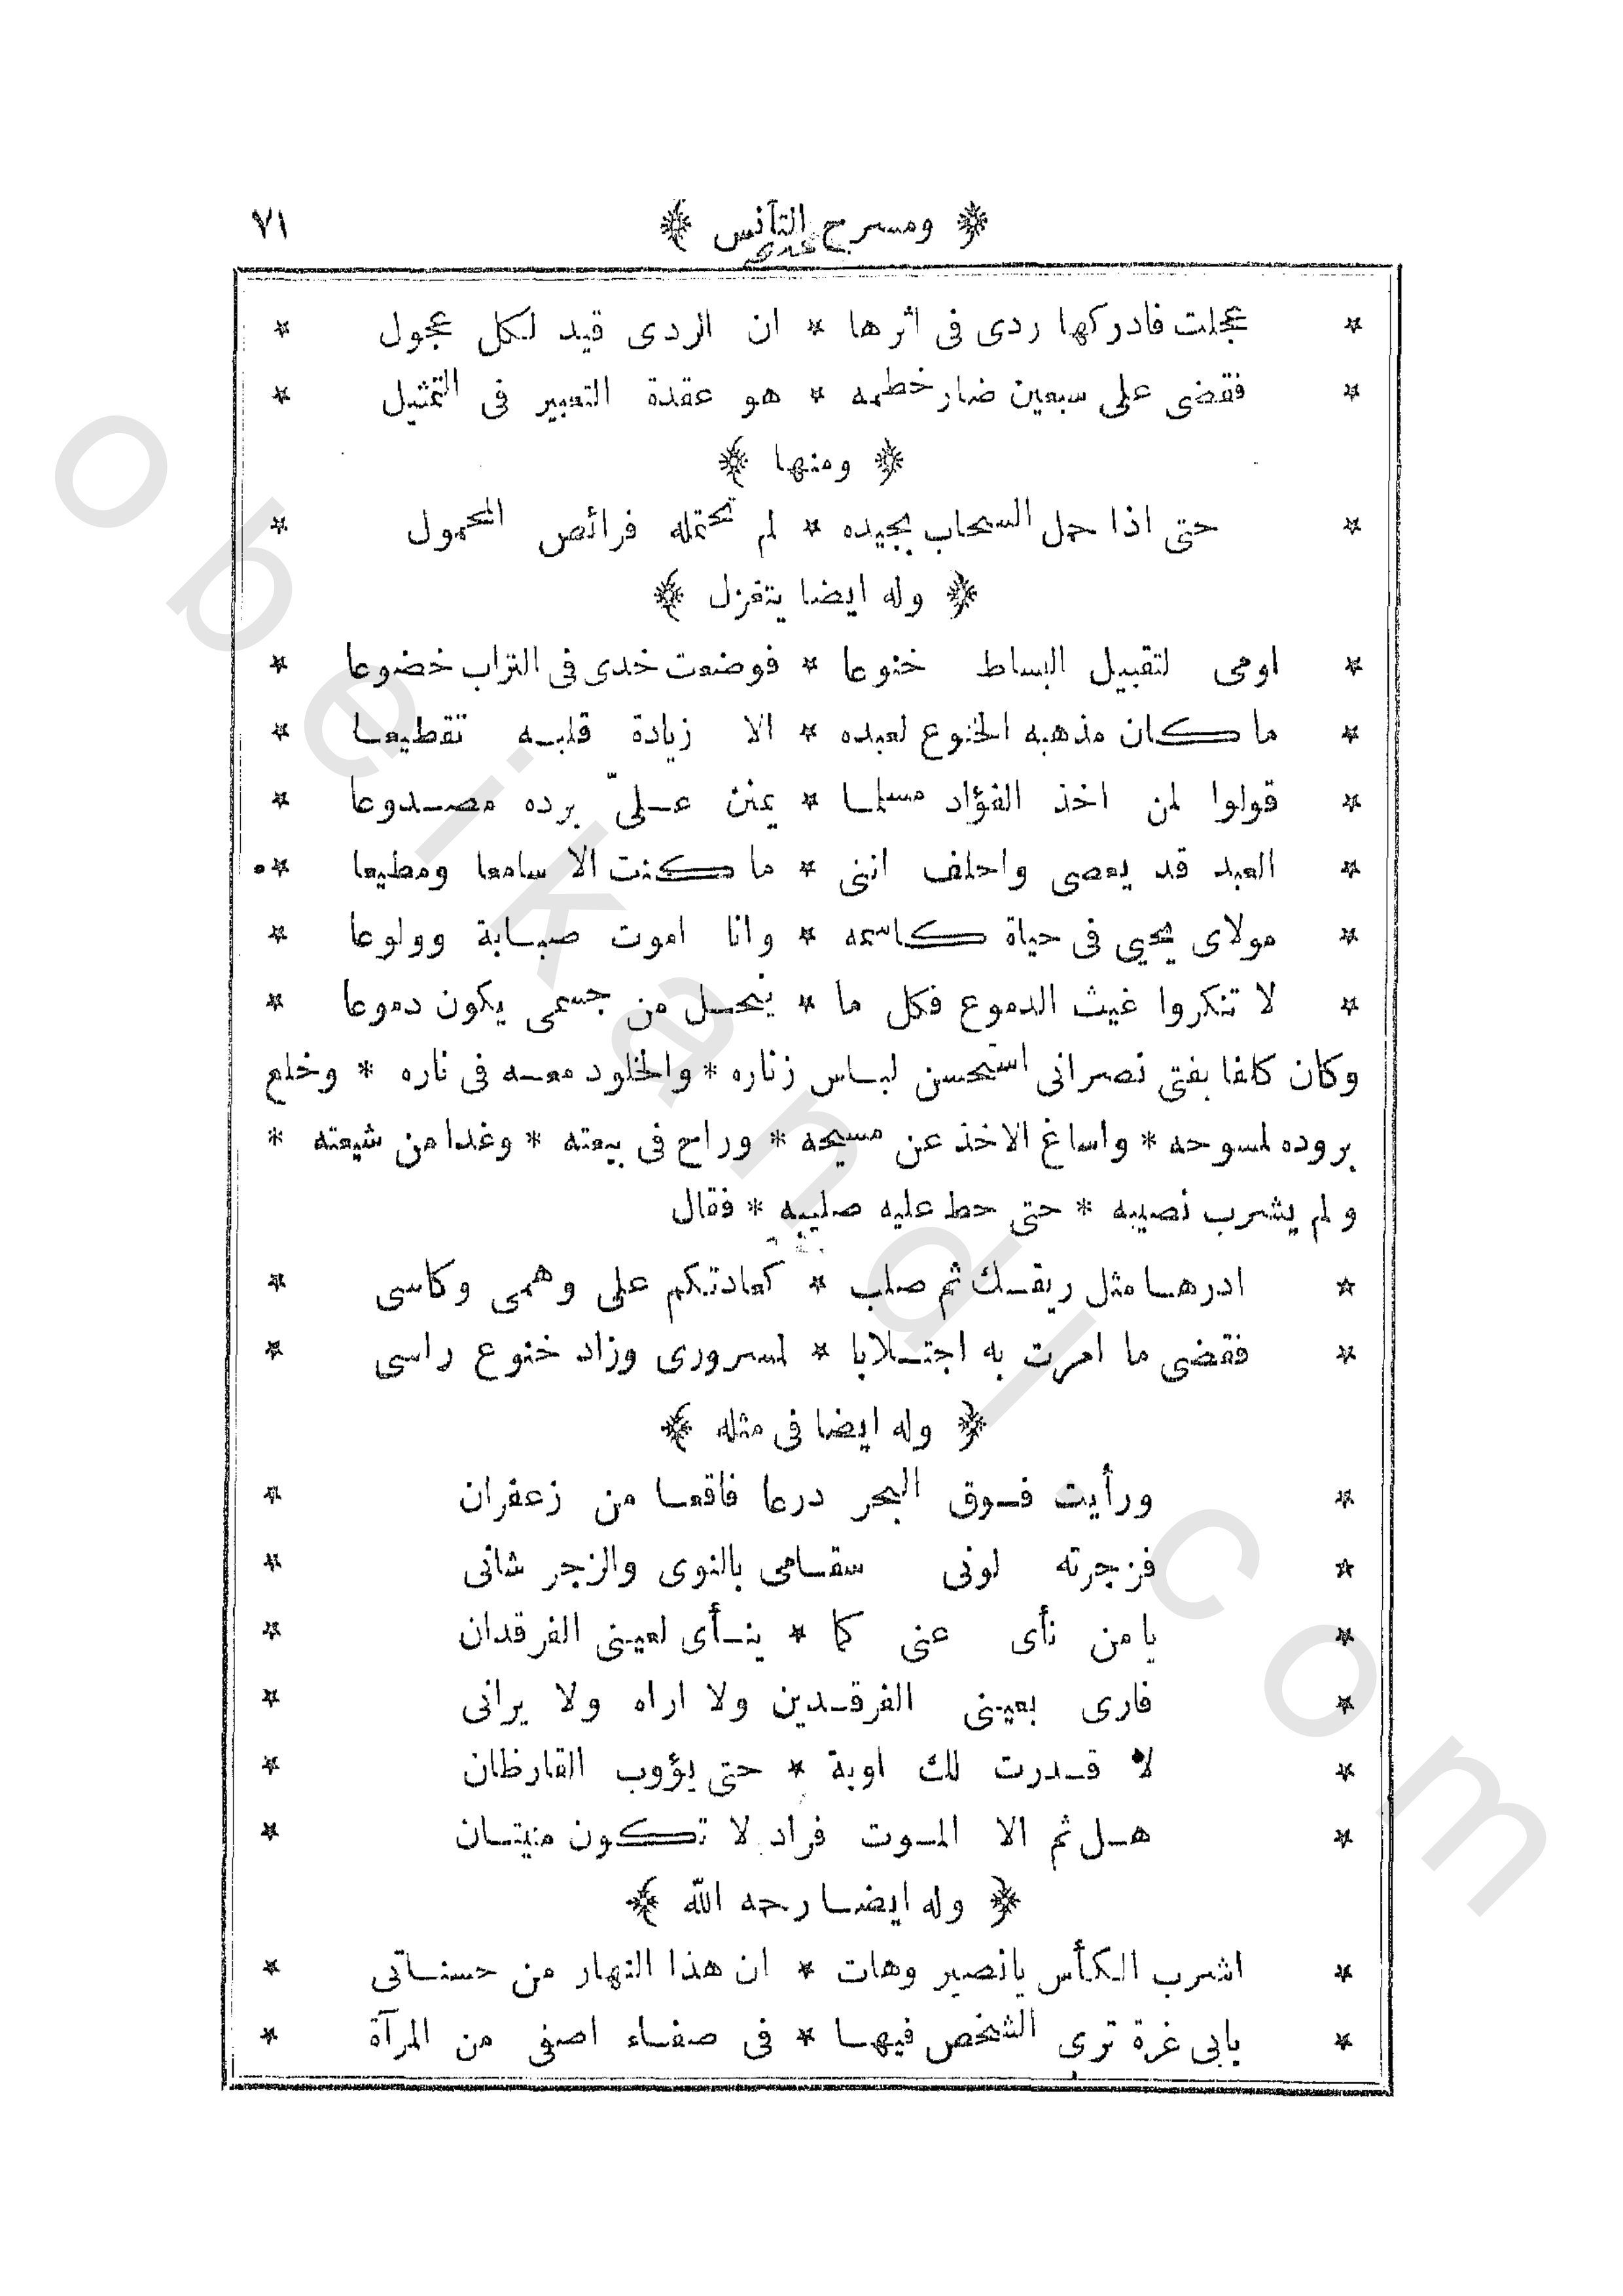 ﴿ ومسرح التآنس ﴾ ٧١
* عجلت فادركها ردى فى اثرها * ان الردى قيد لكل عجول *
* فقضى على سبعين ضار خطمه * هو عقدة التعبير فى التمثيل *
﴿ ومنها ﴾
* حتى اذا حمل السحاب بجيده * لم تحتمله فرائص المحمول *
﴿ وله ايضا يتغزل ﴾
* اومى لتقبيل البساط خنوعا * فوضعت خدى فى التراب خضوعا *
* ما كان مذهبه الخنوع لعبده * الا زيادة قلبه تقطيعا *
* قولوا لمن اخذ الفؤاد مسلما * يمنن علىّ برده مصدوعا *
* العبد قد يعصى واحلف اننى * ما كنت الا سامعا ومطيعا *
* مولاى يحيى فى حياة كاسمه * وانا اموت صبابة وولوعا *
* لا تنكروا غيث الدموع فكل ما * ينحل من جسمى يكون دموعا *
وكان كلفا بفتى نصرانى استحسن لباس زناره * والخلود معه فى ناره * وخلع
بروده لمسوحه * واساغ الاخذ عن مسيحه * وراح فى بيعته * وغدا من شيعته *
ولم يشرب نصيبه * حتى حط عليه صليبه * فقال
* ادرها مثل ريقك ثم صلب * كعادتكم على وهمى وكاسى *
* فقضى ما امرت به اجتلابا * لمسرورى وزاد خنوع راسى *
﴿ وله ايضا فى مثله ﴾
* ورأيت فوق البحر درعا فاقعا من زعفران *
* فزجرته لونى سقامى بالنوى والزجر شانى *
* يا من نأى عنى كما * ينأى لعينى الفرقدان *
* فارى بعينى الفرقدين ولا اراه ولا يرانى *
* لا قدرت لك اوبة * حتى يؤوب القارظان *
* هل ثم الا الموت فراد لا تكون منيتان *
﴿ وله ايضا رحمه الله ﴾
* اشرب الكأس يانصير وهات * ان هذا النهار من حسناتى *
* بابى غرة ترى الشخص فيها * فى صفاء اصفى من المرآة *
obeikandl.com